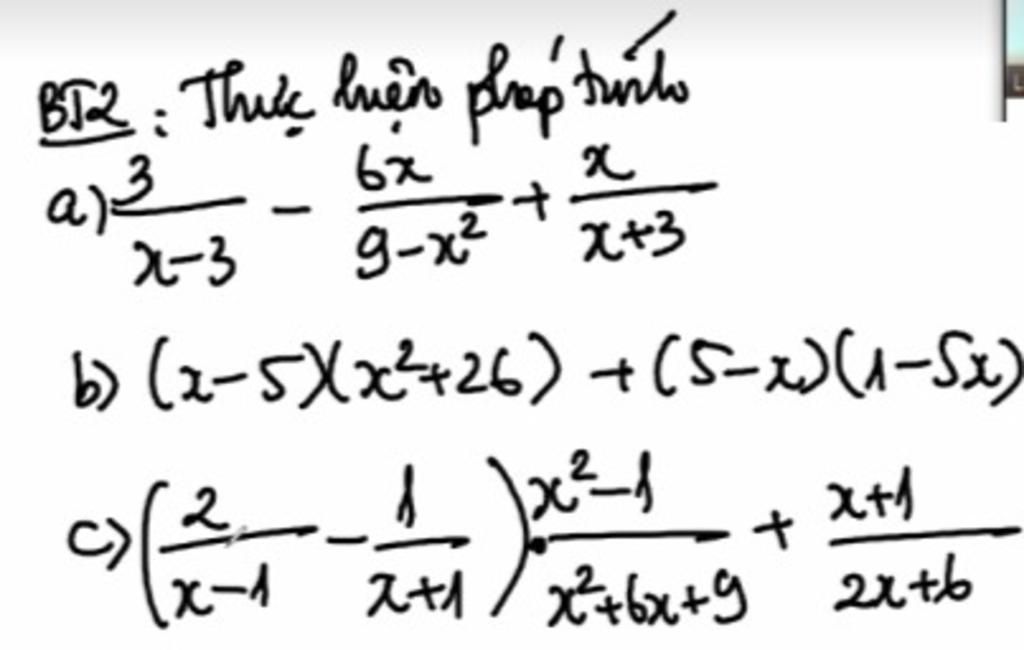 BT2 : Thực hiện phép tính
a) 3/(x-3) - 6x/(9-x²) + x/(x+3)
b) (x-5)(x²+26) + (5-x)(1-5x)
c) (2/(x-1) - 1/(x+1)) . (x²-1)/(x²+6x+9) + (x+1)/(2x+6)